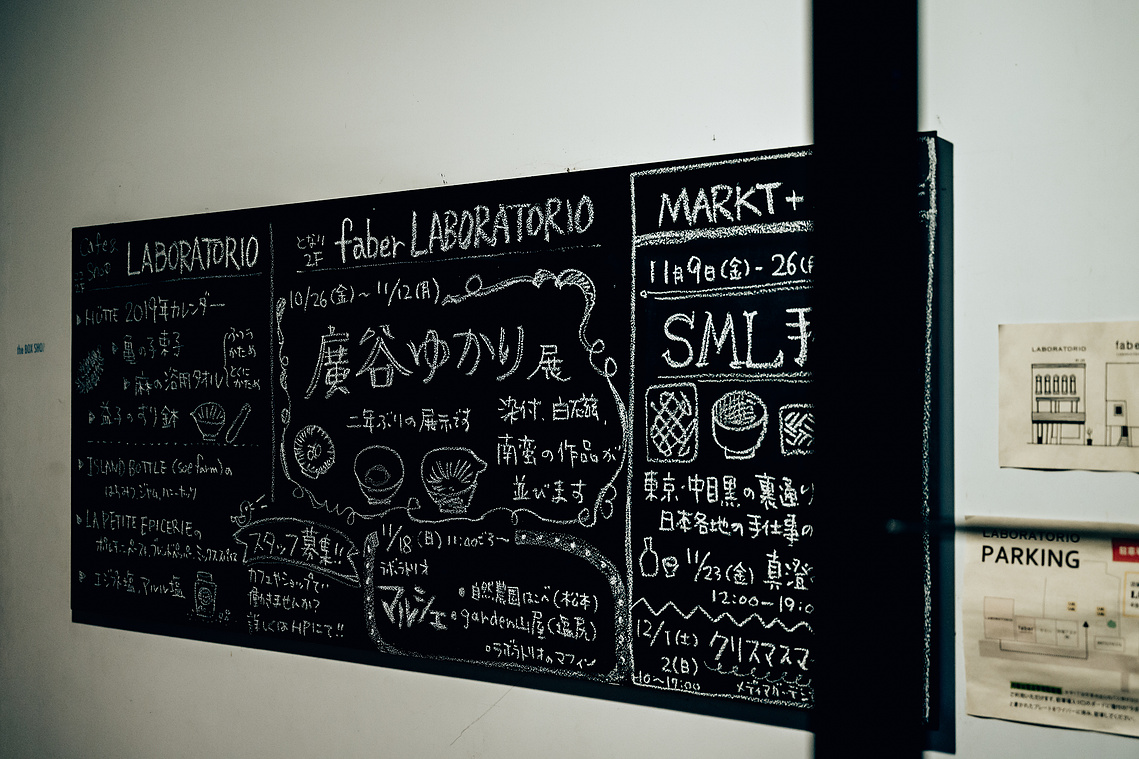 the BOX SHOP
Cafe &
Shop
LABORATORIO
HÜTTE 2019年カレンダー
亀の子束子
麻の浴用タオル
ふつう
かため
とくに
かため
益子のすり鉢
ISLAND BOTTLE (sce farm)の
はちみつ、ジャム、ハニーナッツ
LA PETITE EPICERIEの
エジプト塩、マルル塩
スタッフ募集!!
カフェやショップで
働きませんか?
詳しくはHPにて!!
となり
2F
faber LABORATORIO
10/26(金)~11/12(月)
廣谷ゆかり展
二年ぶりの展示です
染付、白磁、
南蛮の作品が
並びます
11/18(日) 11:00ごろ~
ラボラトリオ
マルシェ
自然農園はこべ(松本)
garden山屋(塩尻)
ラボラトリオのマフィン
MARKT+
11月9日(金)-26(
SML手
東京・中目黒の裏通り
日本各地の手仕事の
11/23(金) 真澄
12:00-19:0
12/1(土)
2(日)
10~17:00
クリスマスマ
メディアガーデン
LABORATORIO
fabe
LABORATORIO
PARKING